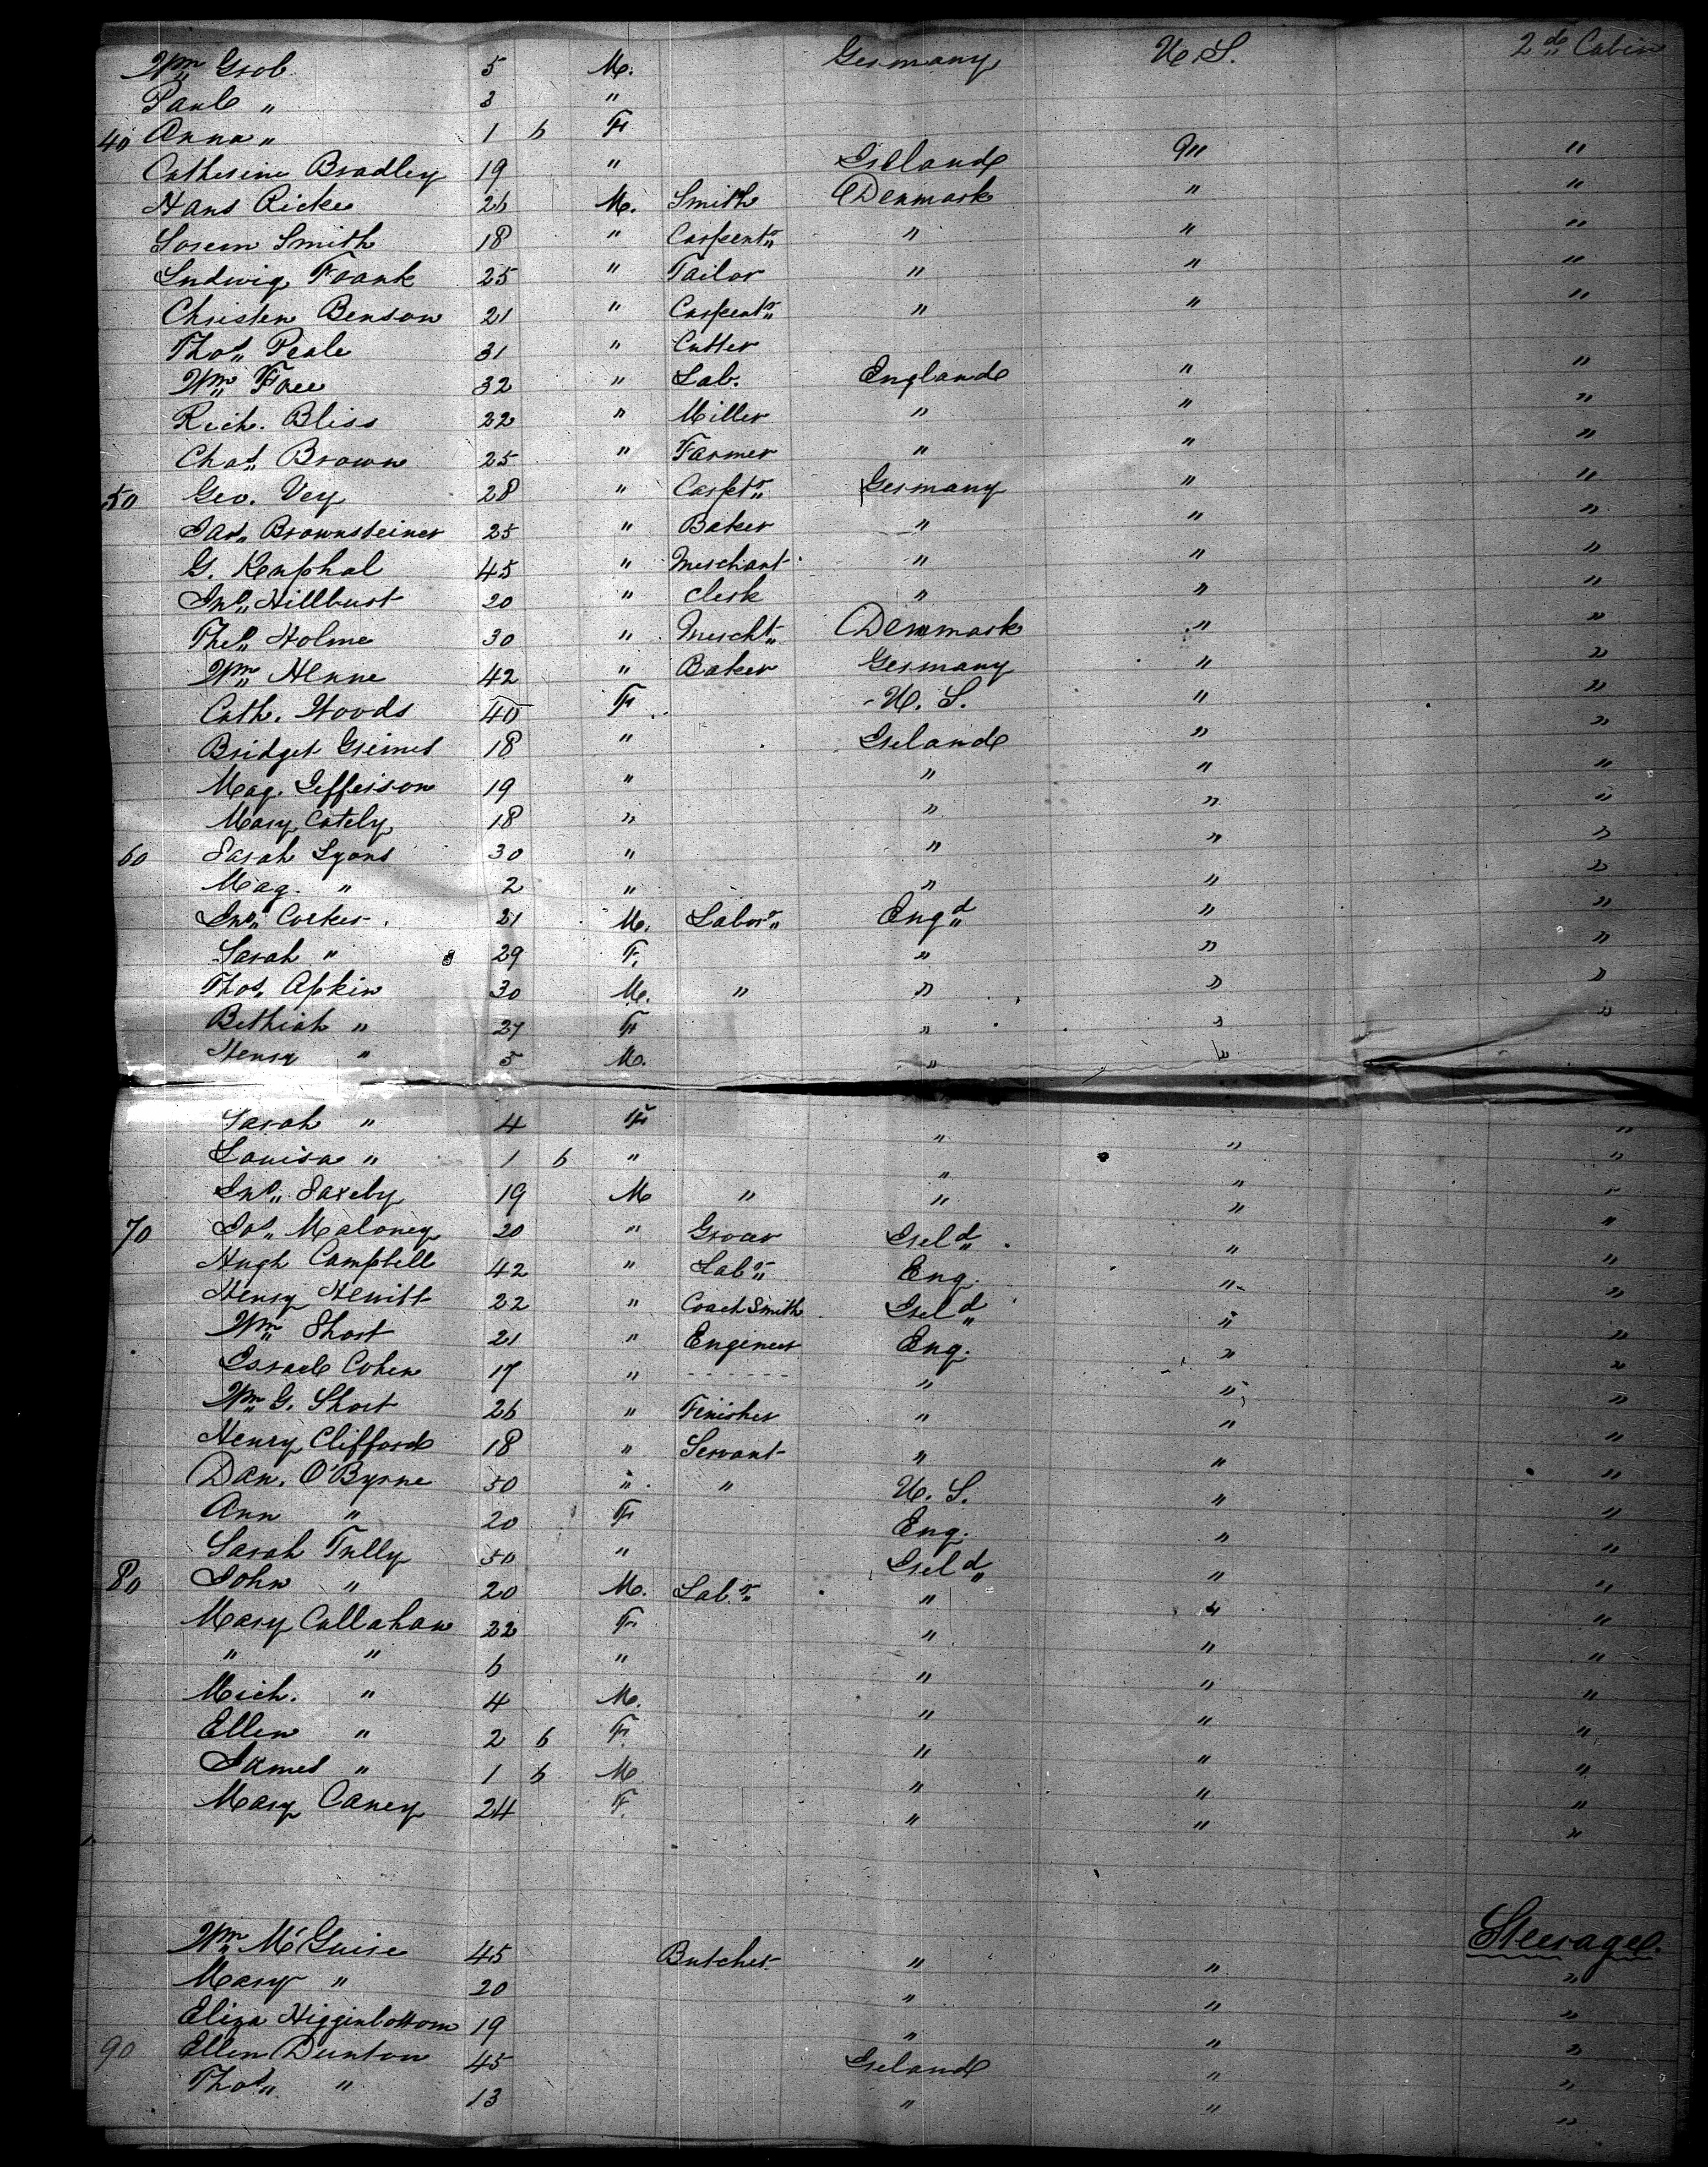 Wm Grob 5 M. Germany U.S. 2d Cabin
Paul " 3 "
40 Anna " 1 6 F
Catherine Bradley 19 " Ireland " "
Hans Ricke 26 M. Smith Denmark " "
Sorem Smith 18 " Carpentr " " "
Ludwig Frank 25 " Tailor " " "
Christen Benson 21 " Carpentr " " "
Thos Peale 31 " Cutter
Wm Free 32 " Lab. England " "
Rich. Bliss 22 " Miller " " "
Chas Brown 25 " Farmer " " "
50 Geo. Vey 28 " Carptr Germany " "
Jas Brownsteiner 25 " Baker " " "
G. Kenphal 45 " Merchant " " "
Jno Hillbust 20 " Clerk " " "
Theo Holme 30 " Mercht Denmark " "
Wm Henne 42 " Baker Germany " "
Cath. Woods 40 F U.S. " "
Bridget Grimes 18 " Ireland " "
Mag. Jefferson 19 " " " "
Mary Cately 18 " " " "
60 Sarah Lyons 30 " " " "
Mag. " 2 " " " "
Jno Corker 21 M. Labor Engd " "
Sarah " 29 F. " " "
Thos Apkin 30 M. " " " "
Bethiah " 27 F " " "
Henry " 5 M. " "
Sarah " 4 F " " "
Louisa " 1 6 " " " "
Jno Saxeby 19 M " " " "
70 Jos Maloney 20 " Grocer Ireld " "
Hugh Campbell 42 " Labr Eng. " "
Henry Hewitt 22 " Coach Smith Ireld " "
Wm Short 21 " Engineer Eng. " "
Israel Cohen 17 " - - - - - - " " "
Wm G. Short 26 " Finisher " " "
Henry Clifford 18 " Servant " " "
Dan. O'Byrne 50 " " U.S. " "
Ann " 20 F Eng. " "
Sarah Tully 50 " Ireld " "
80 John " 20 M. Labr " " "
Mary Callahan 22 F " " "
" " 6 " " " "
Mich. " 4 M. " " "
Ellen " 2 6 F. " " "
James " 1 6 M " " "
Mary Caney 24 F. " " "
Steerage.
Wm McGuire 45 Butcher " " "
Mary " 20 " " "
Eliza Higginbottom 19 " " "
90 Ellen Dunton 45 Ireland " "
Thos " 13 " " "